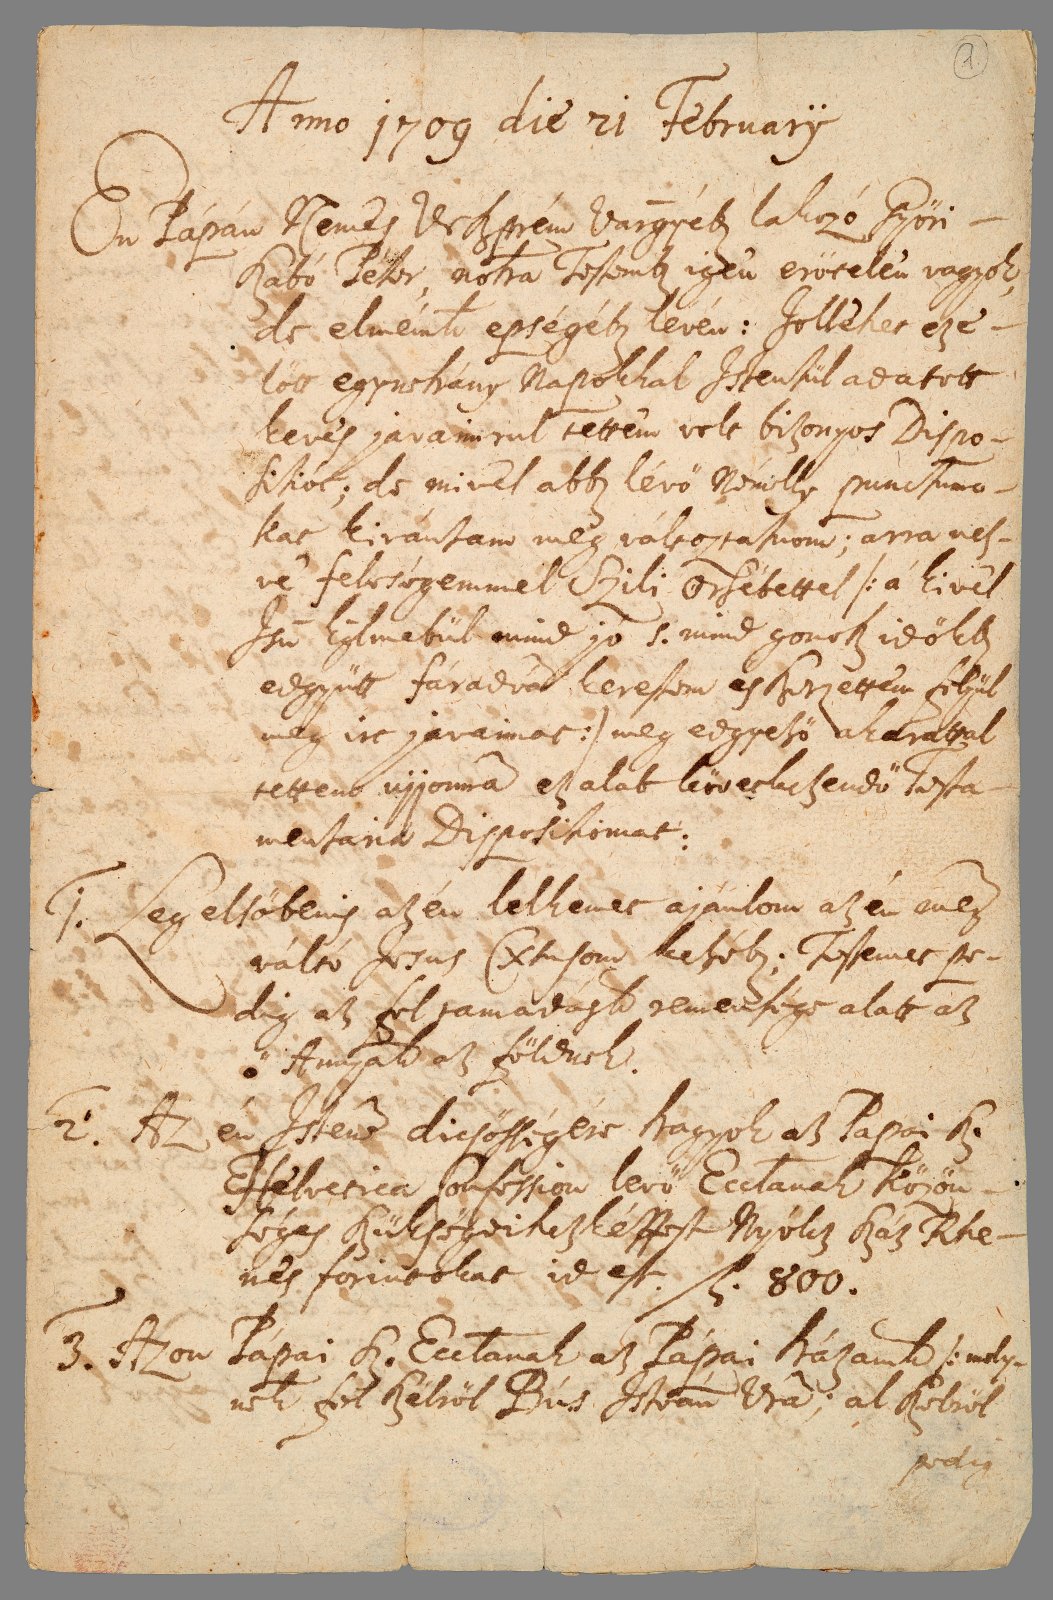 1.
Anno 1709 die 21 February
En Pápán Nemes Veszprém Varmgyéb lakozó Győri
Szabó Péter, nohá Testemb igen erőtelen vagyok,
de elmémk épségéb lévén: Jollehet eze-
lőtt egynehány Napokkal Istentűl adatott
keves javaimrul tettem volt bizonyos Dispo-
sitiót; de mivel abb lévő Némelly punctumo-
kat kivántam meg változtatnom; arra néz-
ve feleségemmel Szili Ersébettel /: á kivel
Isn kglmebűl mind jó s. mind gonosz időkb
edgyütt fáradva kerestem es szerzettem feljül
meg irt javaimat :/ meg edgyező akarattal
tettem ujjonnã ez alab következendő Testa-
mentaria Dispositiomat:
1. Leg elsőbenis az én lelkemet ajánlom az én meg
váltó Jesus Xtusom kezéb; Testemet pe-
dig az fel tamadásk remensége alatt az
ő Annyák az földnek.
2. Az én Istenẽ dicsősségére hagyok az Papai Sz.
Helvetica Confession levő Ecclanak közön-
séges szükségeihez képpest Nyólcz száz Rhe-
nes forintokat id est. fl. 800.
3. Azon Pápai Sz. Ecclanak az Pápai házamk /: mely-
nek fel szélről Bús István Vrã; al szélről
pedig